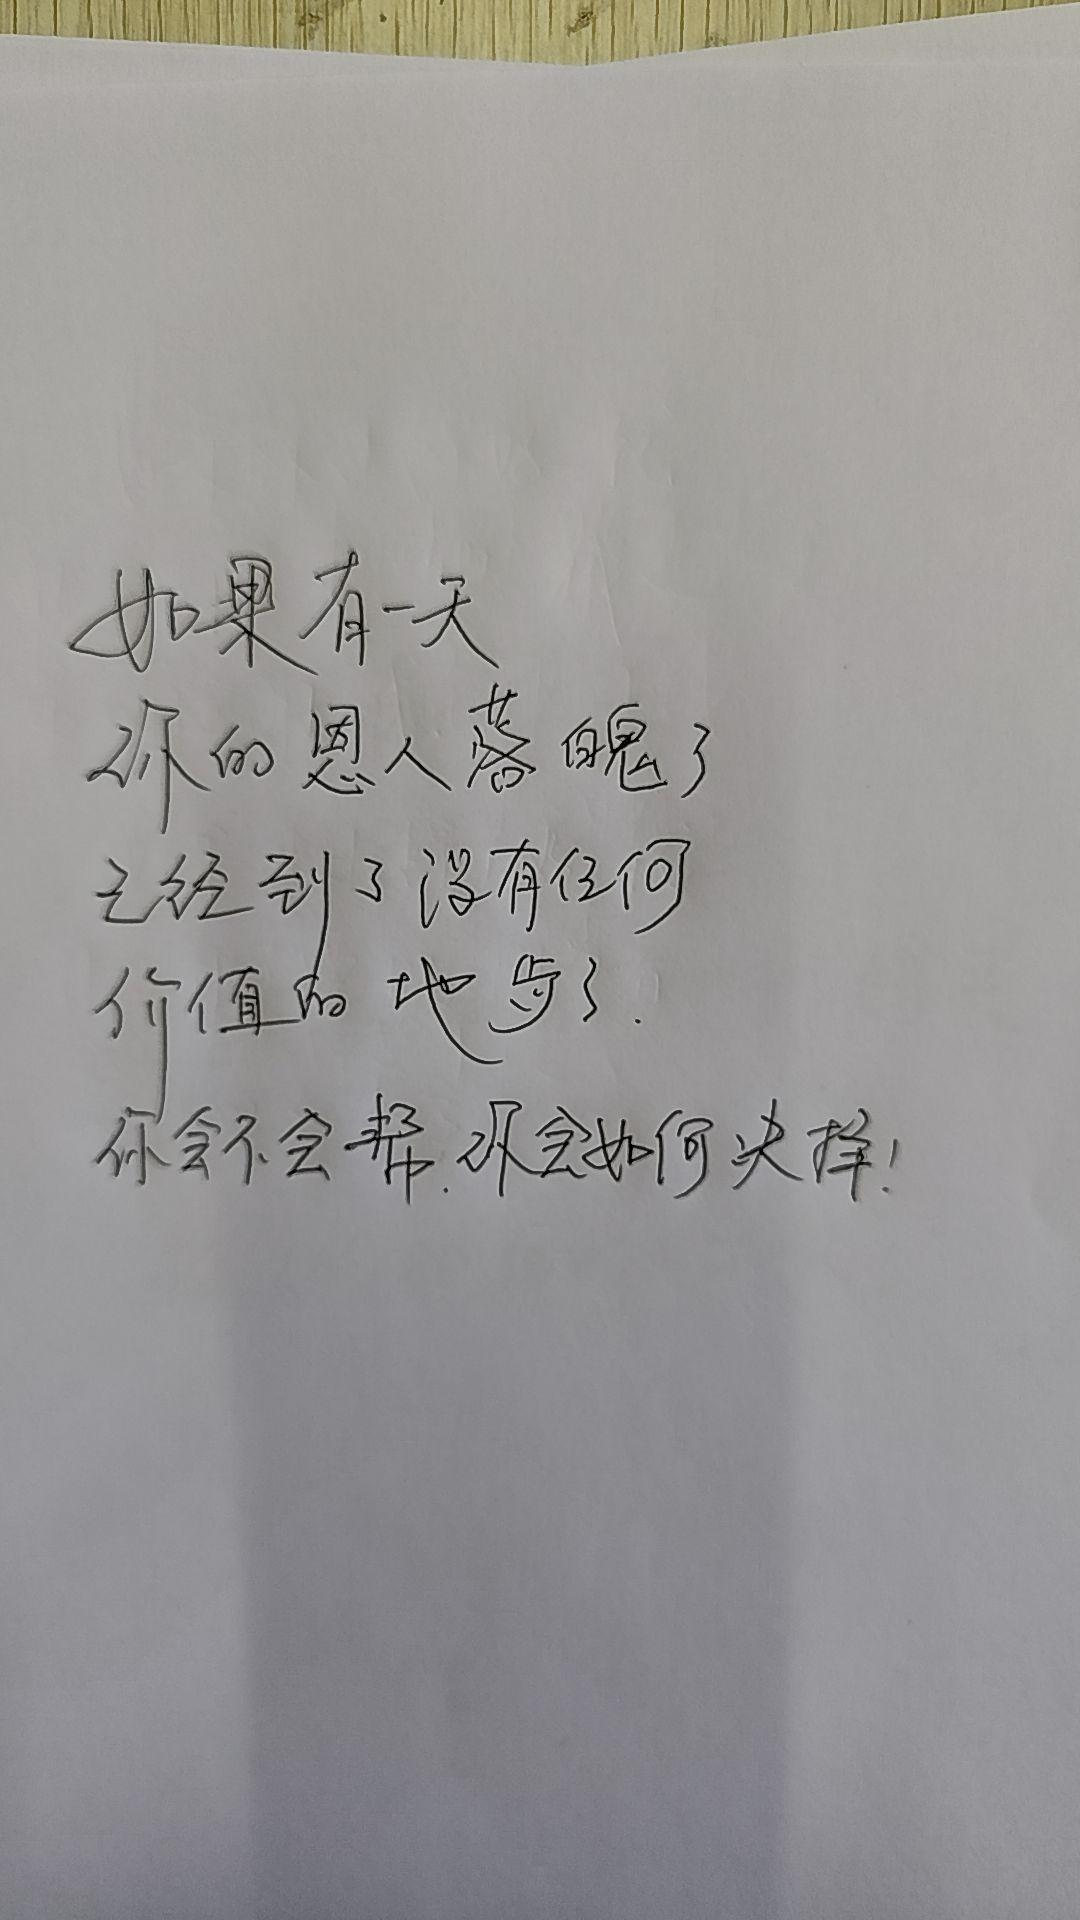 如果有一天
你的恩人落魄了
已经到了没有任何
价值的地步了.
你会不会帮.你会如何决择!